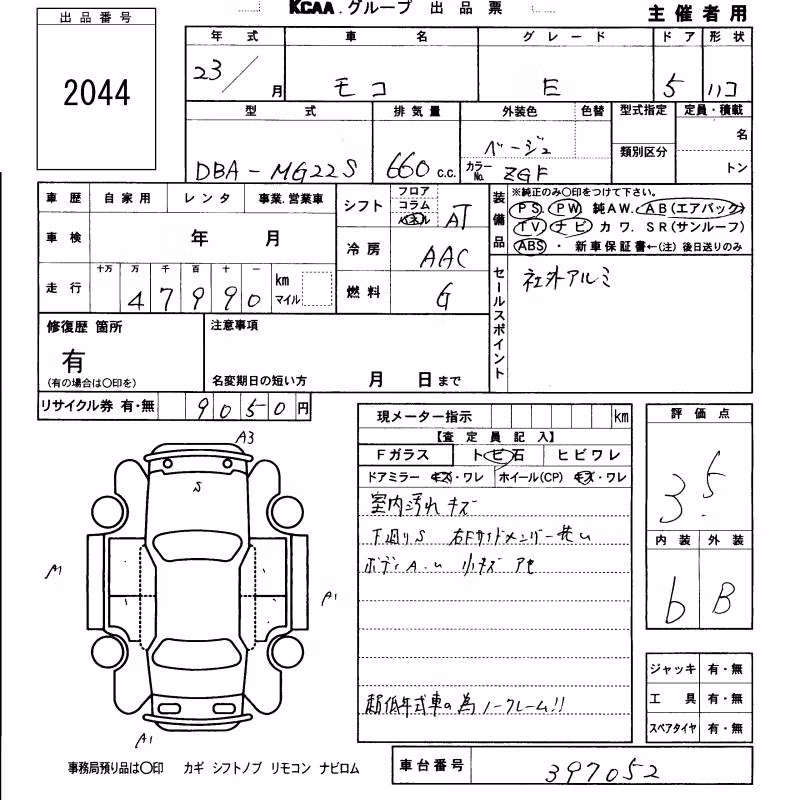 KCAA.グループ 出品票 主催者用
出品番号
2044
年式 車名 グレード ドア 形状
23/ 月 モコ E 5 ハコ
型式 排気量 外装色 色替 型式指定 定員・積載
DBA-MG22S 660 c.c. ベージュ 類別区分 名
カラーNo. ZGF トン
車歴 自家用 レンタ 事業.営業車
シフト フロア コラム パネル AT
車検 年 月
冷房 AAC
走行 十万 万 千 百 十 一
47990 km マイル
燃料 G
装備品 ※純正のみ〇印をつけて下さい。
PS. PW. 純AW. AB(エアバック)
TV ナビ カワ. SR(サンルーフ)
ABS・新車保証書←(注)後日送りのみ
セールスポイント 社外アルミ
修復歴 箇所
有
(有の場合は〇印を)
注意事項
名変期日の短い方 月 日まで
リサイクル券 有・無 9050円
現メーター指示 km
【査定員記入】
Fガラス トビ石 ヒビワレ
ドアミラー キズ・ワレ ホイール(CP) キズ・ワレ
室内汚れ キズ
下廻りS 右Fサイドメンバー
ボディA.U 小キズ
超低年式車の為ノークレーム!!
評価点
3.5
内装 外装
b B
ジャッキ 有・無
工具 有・無
スペアタイヤ 有・無
A3
S
A1
A1
A1
事務局預り品は〇印 カギ シフトノブ リモコン ナビロム
車台番号 397052